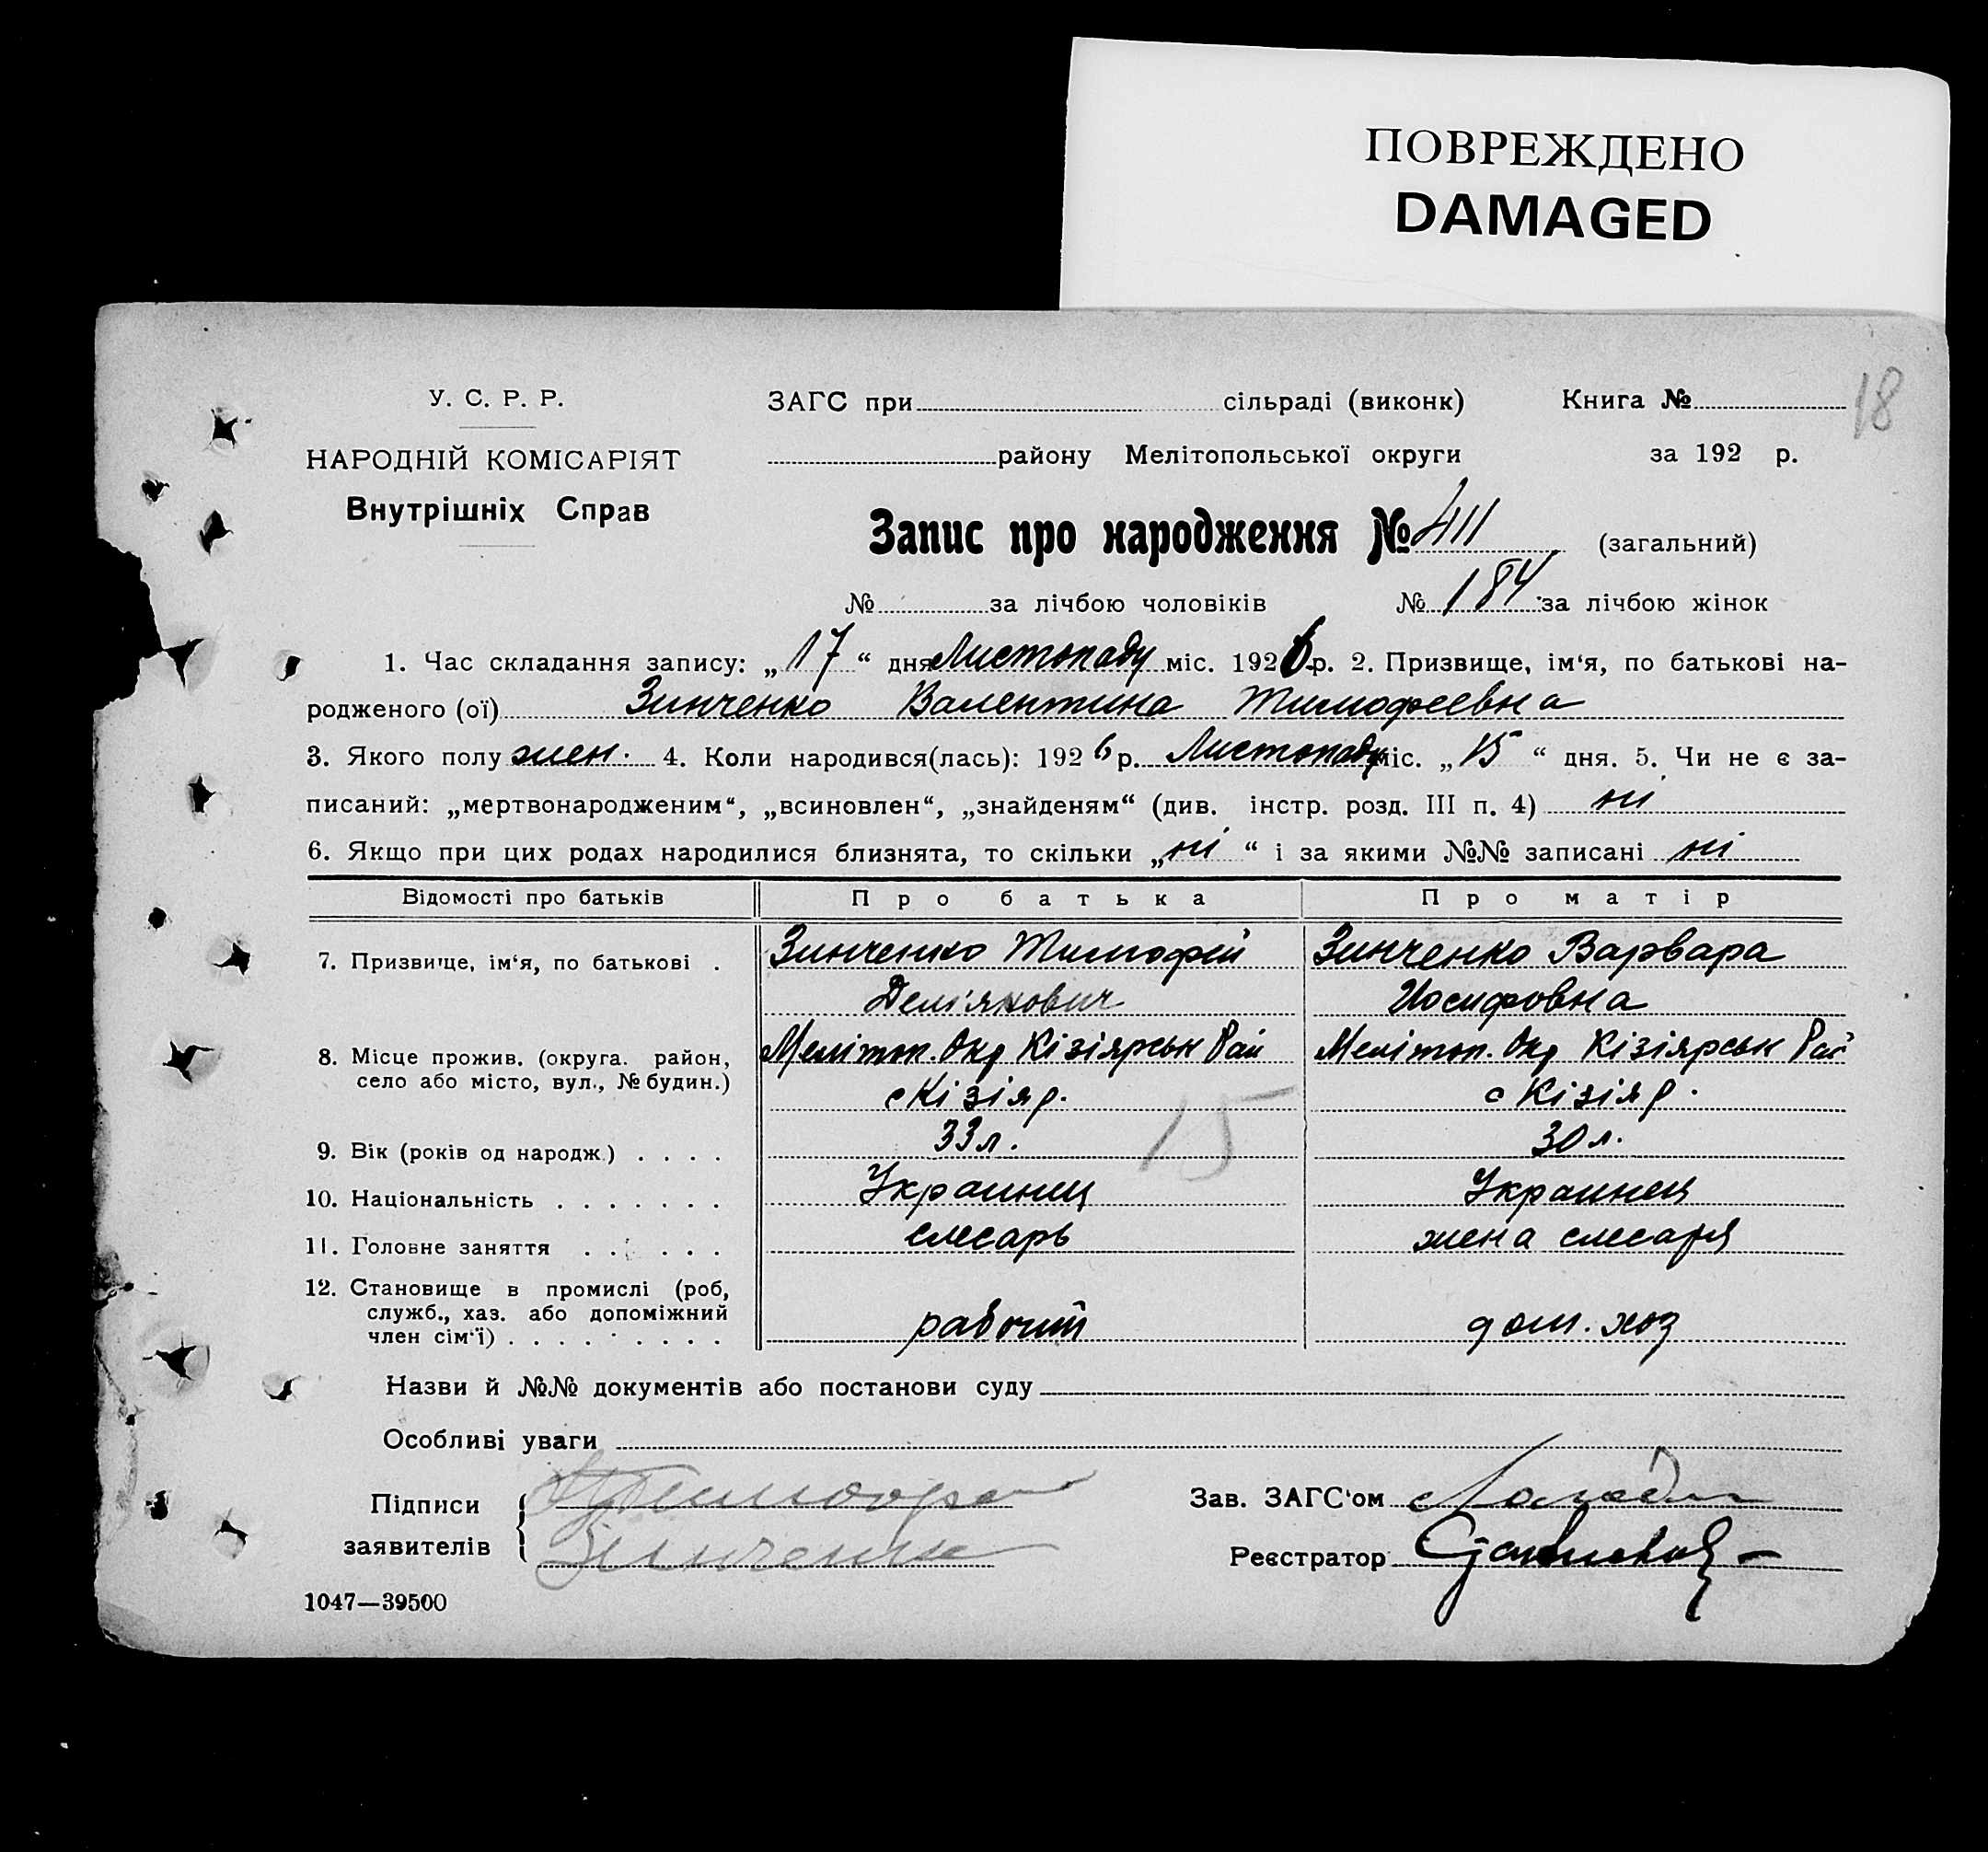 ПОВРЕЖДЕНО
DAMAGED
18
У. С. Р. Р.
НАРОДНІЙ КОМІСАРІЯТ
Внутрішніх Справ
ЗАГС при сільраді (виконк) Книга №
району Мелітопольської округи за 192 р.
Запис про народження № 411 (загальний)
№ за лічбою чоловіків № 184 за лічбою жінок
1. Час складання запису: „17“ дня Листопаду міс. 1926 р. 2. Призвище, ім‘я, по батькові на-
родженого (ої) Зинченко Валентина Тимофеевна
3. Якого полу жен. 4. Коли народився(лась): 1926 р. Листопаду міс. „15“ дня. 5. Чи не є за-
писаний: „мертвонародженим“, „всиновлен“, „знайденям“ (див. інстр. розд. III п. 4) ні
6. Якщо при цих родах народилися близнята, то скільки „ні“ і за якими №№ записані ні
Відомості про батьків Про батька Про матір
7. Призвище, ім‘я, по батькові . Зинченко Тимофей Зинченко Варвара
Дем‘янович Иосифовна
8. Місце прожив. (округа. район, Меліт��п. Окр Кізіярськ Рай Мелітоп. Окр Кізіярськ Рай
село або місто, вул., № будин.) с Кізіяр. с Кізіяр.
9. Вік (років од народж.) . . . . 33 л. 30 л.
15
10. Національність . . . . . . . Украинец Украинец
11. Головне заняття . . . . . . слесарь жена слесаря
12. Становище в промислі (роб,
служб., хаз. або допоміжний
член сім‘ї) . . . . . . . . . рабочий дом. хоз
Назви й №№ документів або постанови суду
Особливі уваги
Підписи
заявителів Зинченко
Зав. ЗАГС‘ом
Реєстратор
1047—39500